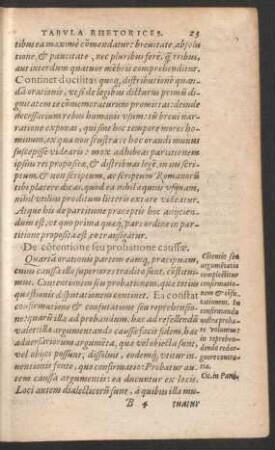 TABVLA RHETORICES. 23
tibus ea maximè cõmendatur: breuitate, absolu
tione, & paucitate, nec pluribus ferè, q̃ tribus,
aut interdum quatuor mẽbris comprehenditur.
Continet
oratione, ve si de legibus dicturus primũ di
gnitatem se cõmemoraturum promittat: deinde
necessarium rebus humanis vsum: tũ breui nar-
ratione exponat, qui sint hoc tempore mores ho
minum, ex qua non frustra ac leuandi muneris
suscepisse videaris: mox adhibeas partitionem
ipsius rei propositæ, & distribuas legẽ, in nõ scri-
ptum, & non scriptum, ac scriptum Romanorũ
tibi placere doceas, quod ea nihil æquius vsquam,
nihil vtilius proditum litteris extare videatur.
Atque his de partitione præceptis hoc
dum est, vt quo prima quæq; pars ordine in par-
titione proposita est, ea transigatur.
De cõtentione seu probatione caussæ.
Quarta orationis partem eamq; præcipuam,
cuius caussa illa superiora tradita sunt, cõstitui-
mus. Contentionem seu probationem, quæ totius
quæstionis disputationem continet. Ea constat
confirmatione & confutatione seu reprehensio-
ne: quarũ illa ad probandum, hæc ad refellendũ
valet: illa argumentando caussæ facit fidem, hæc
aduersariorum argumẽta, quæ vel obiecta sunt,
vel obijci possunt, dissoluit, eodemq; vtitur in-
uentionis fonte, quo confirmatio: Probatur au-
tem caussa argumentis: ea ducuntur ex locis.
Loci autem dialecticorũ sunt, à quibus illa mu-
B 4
Cõtentio seu
argumẽtatio
complectitur
confirmatio-
nem & cõfu-
tationem. In
confirmanda
nostra proba-
re volumus:
in reprehen-
denda redar-
guere contra-
ria.
Cic. in Parti.